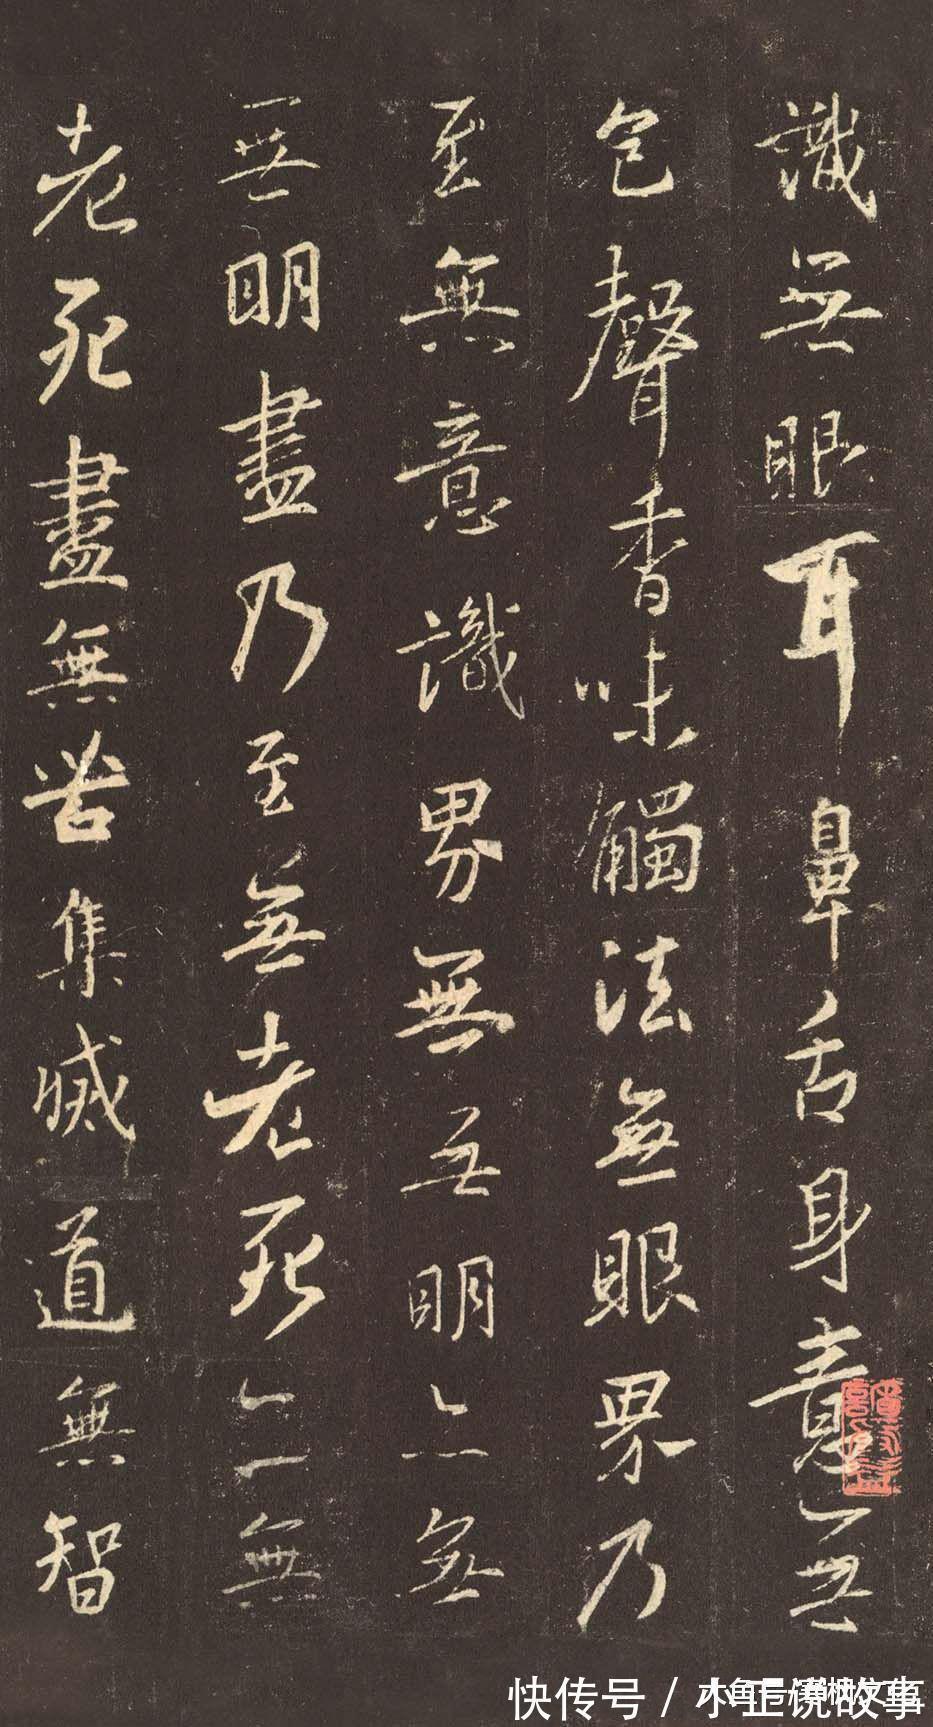 識無眼耳鼻舌身意無
色聲香味觸法無眼界乃
至無意識界無無明亦無
無明盡乃至無老死亦無
老死盡無苦集滅道無智
快传号/小正说故事